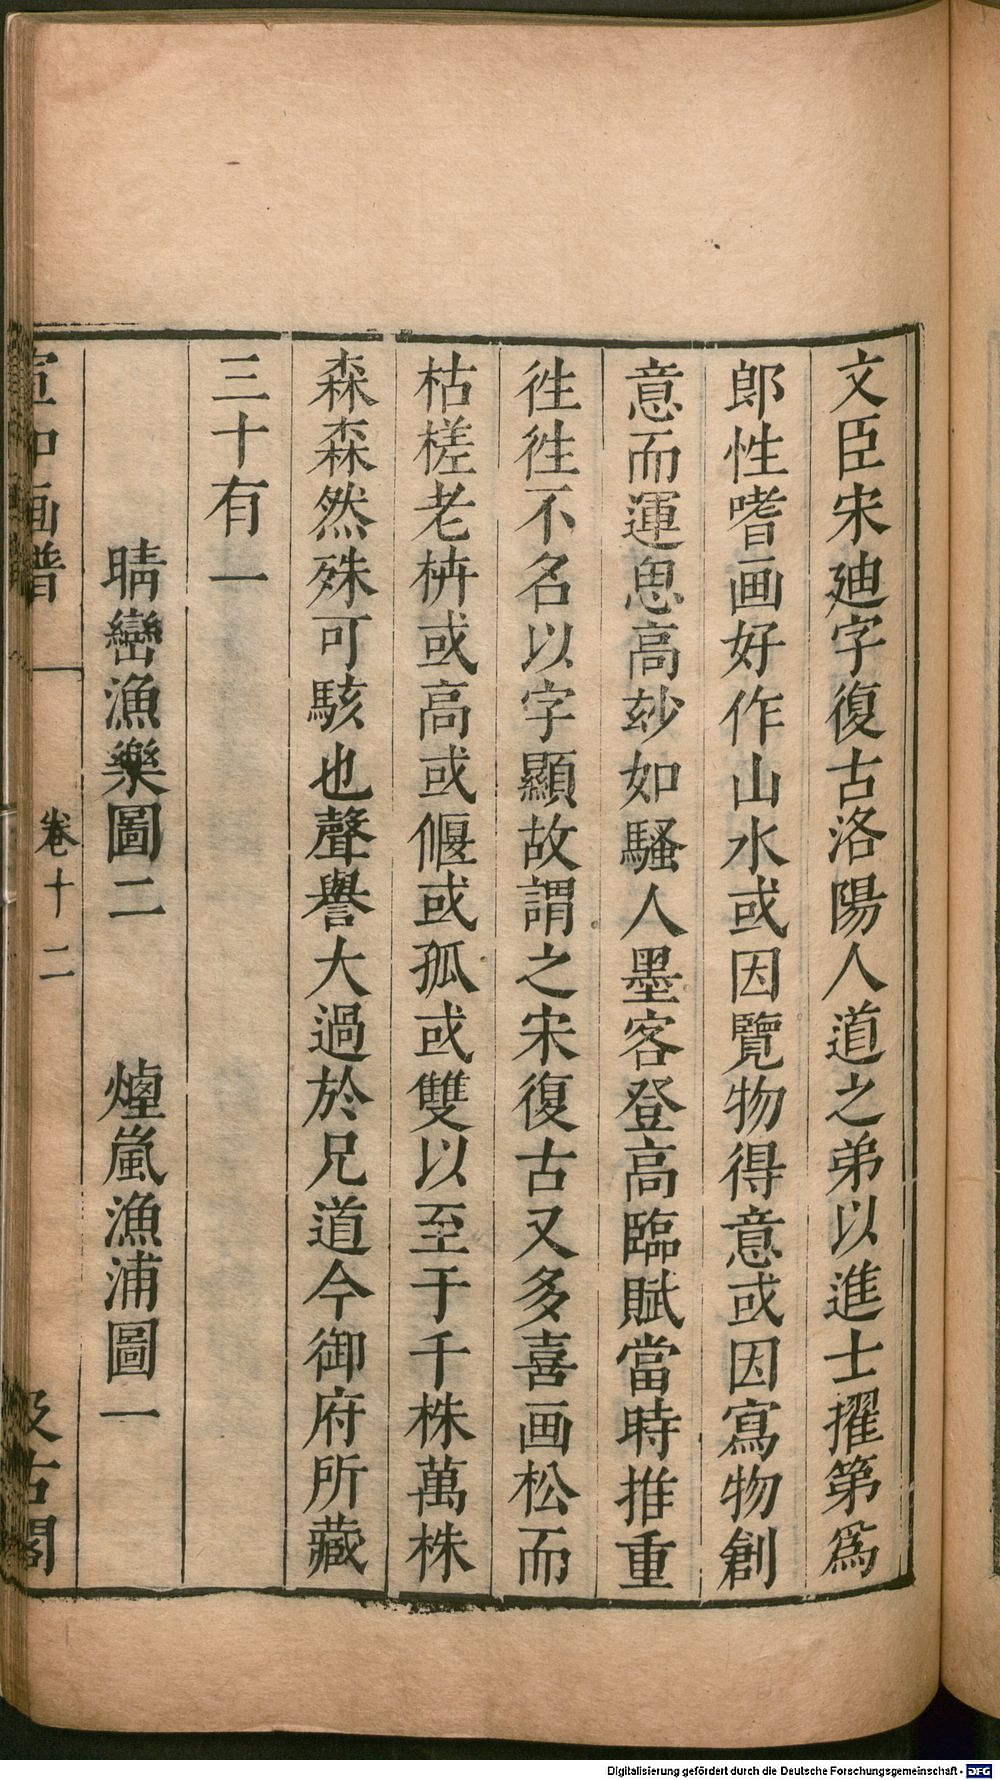 文臣宋廸字復古洛陽人道之弟以進士擢第爲
郎性嗜画好作山水或因覽物得意或因寫物創
意而運思高玅如騷人墨客登高臨賦當時推重
徃徃不名以字顯故謂之宋復古又多喜画松而
枯槎老枿或高或偃或孤或雙以至于千株萬株
森森然殊可駭也聲譽大過於兄道今御府所藏
三十有一
晴巒漁樂圖二　煙嵐漁浦圖一
宣和画譜　卷十二　汲古閣
Digitalisierung gefördert durch die Deutsche Forschungsgemeinschaft - DFG